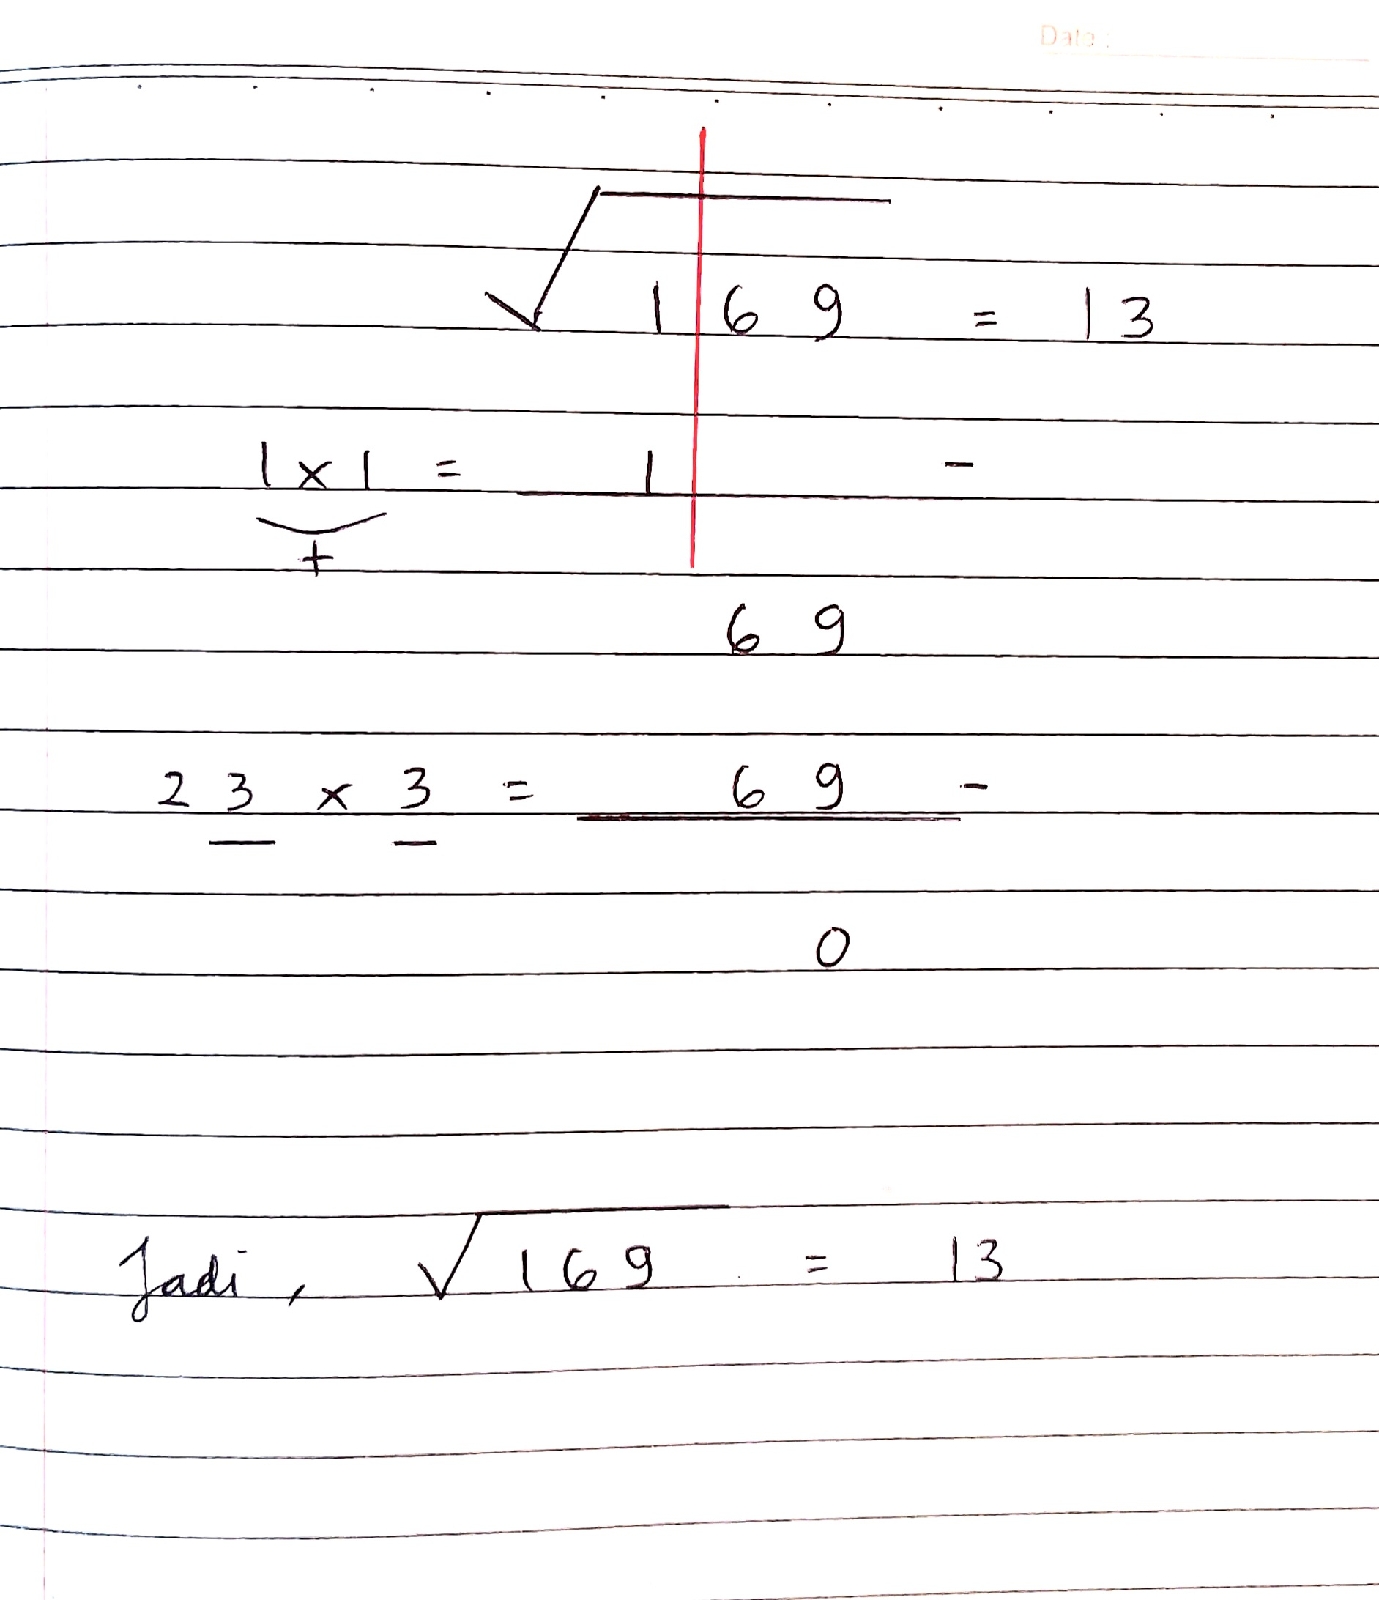 Date :
√169 = 13
1 x 1 = 1 -
+
6 9
2 3 x 3 = 6 9 -
0
Jadi, √169 = 13